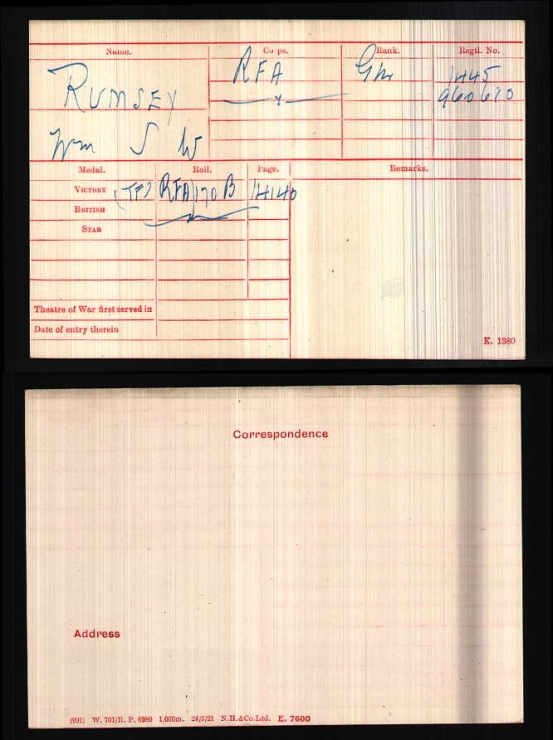 Name. Corps. Rank. Regtl. No.
RUMSEY RFA Gnr 1445
" " 960610
Wm J W
Medal. Roll. Page. Remarks.
VICTORY (TF) RFA/170 B 14140
BRITISH
STAR
Theatre of War first served in
Date of entry therein
K. 1380
Correspondence
Address
(991) W. 761/R. P. 6980 1,000m. 24/5/21 N.H.&Co.Ltd. E. 7600